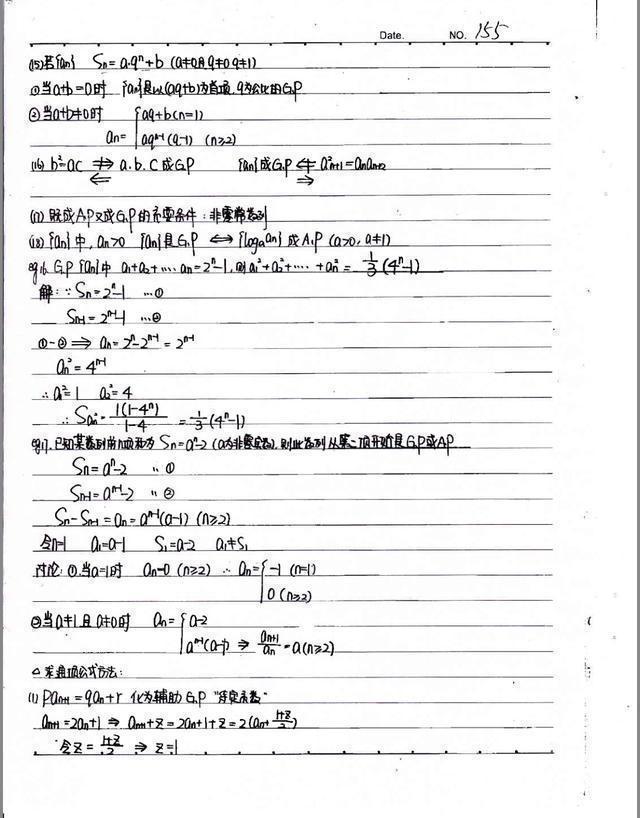 Date. NO. 155
(15)若{an} Sn=a·qⁿ+b (a≠0且q≠0 q≠1)
①当a+b=0时 {an}是以(aq+b)为首项,q为公比的G.P
②当a+b≠0时 an={aq+b(n=1)
aqⁿ⁻¹(q-1) (n≥2)
(16) b²=ac ⇏ a.b.c成G.P {an}成G.P ⇍ a²n+1=anan+2
⇐ ⇒
(17) 既成A.P又成G.P的充要条件:非零常数列
(18) {an}中,an>0 {an}是G.P ⇔ {logaan}成A.P (a>0,a≠1)
eg16. G.P {an}中 a1+a2+…an=2ⁿ-1,则a1²+a2²+…+an²=1/3(4ⁿ-1)
解:∵Sn=2ⁿ-1 …①
Sn-1=2ⁿ⁻¹-1 …②
①-② ⇒ an=2ⁿ-2ⁿ⁻¹=2ⁿ⁻¹
an²=4ⁿ⁻¹
∴a1²=1 a2²=4
∴San²=1(1-4ⁿ)/1-4=1/3(4ⁿ-1)
eg17.已知某数列前n项和为Sn=aⁿ-2(a为非零实数),则此数列从第二项开始是G.P或A.P
Sn=aⁿ-2 … ①
Sn-1=aⁿ⁻¹-2 … ②
Sn-Sn-1=an=aⁿ⁻¹(a-1) (n≥2)
令n=1 a1=a-1 S1=a-2 a1≠S1
讨论:①当a=1时 an=0 (n≥2) ∴an={-1 (n=1)
0 (n≥2)
②当a≠1且a≠0时 an={a-2
aⁿ⁻¹(a-1) ⇒ an+1/an=a(n≥2)
△求通项公式方法:
(1) pan+1=qan+r 化为辅助G.P "待定系数"
an+1=2an+1 ⇒ an+1+z=2an+1+z=2(an+1+z/2)
令z=1+z/2 ⇒ z=1